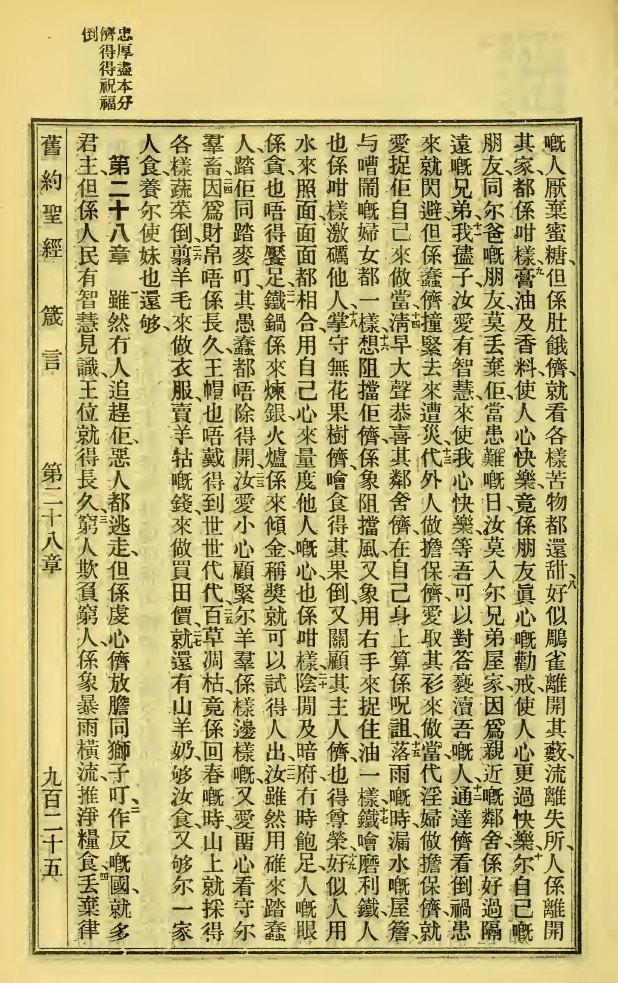 忠厚盡本分
儕得得祝福
倒
嘅人厭棄蜜糖、但係肚餓儕、就看各樣苦物都還甜、八好似鵰雀離開其藪、流離失所、人係離開
其家都係咁樣、九膏油及香料、使人心快樂、竟係朋友眞心嘅勸戒、使人心更過快樂、十尔自己嘅
朋友同尔爸嘅朋友、莫丟棄佢、當患難嘅日、汝莫入尔兄弟屋家、因爲親近嘅鄰舍、係好過隔
遠嘅兄弟、十一我孻子汝愛有智慧、來使我心快樂、等吾可以對答褻瀆吾嘅人、十二通達儕看倒禍患
來就閃避、但係蠢儕撞緊去來遭災、十三代外人做擔保儕、愛取其衫來做當、代淫婦做擔保儕、就
愛捉佢自己來做當、十四清早大聲恭喜其鄰舍儕、在自己身上算係呪詛、十五落雨嘅時漏水嘅屋簷、
与嘈鬧嘅婦女都一樣、十六想阻擋佢儕、係象阻擋風、又象用右手來捉住油一樣、十七鐵噲磨利鐵、人
也係咁樣激礪他人、十八掌守無花果樹儕、噲食得其果倒、又關顧其主人儕、也得尊榮、十九好似人用
水來照面、面面都相合、用自己心來量度他人嘅心也係咁樣、二十陰間及暗府冇時飽足、人嘅眼
係貪也唔得饜足、二一鐵鍋係來煉銀、火爐係來傾金、稱獎就可以試得人出、二二汝雖然用碓來踏蠢
人、踏佢同踏麥叮、其愚蠢都唔除得開、二三汝愛小心顧緊尔羊羣係樣邊樣嘅、又愛畱心看守尔
羣畜、二四因爲財帛唔係長久、王帽也唔戴得到世世代代、二五百草凋枯、竟係回春嘅時、山上就採得
各樣蔬菜倒、二六翦羊毛來做衣服、賣羊牯嘅錢來做買田價、二七就還有山羊奶、够汝食、又够尔一家
人食、養尔使妹也還够、
第二十八章 一雖然冇人追趕佢、惡人都逃走、但係虔心儕放膽同獅子叮、二作反嘅國、就多
君主、但係人民有智慧見識、王位就得長久、三窮人欺負窮人、係象暴雨橫流、推淨糧食、四丟棄律
舊約聖經 箴言 第二十八章 九百二十五